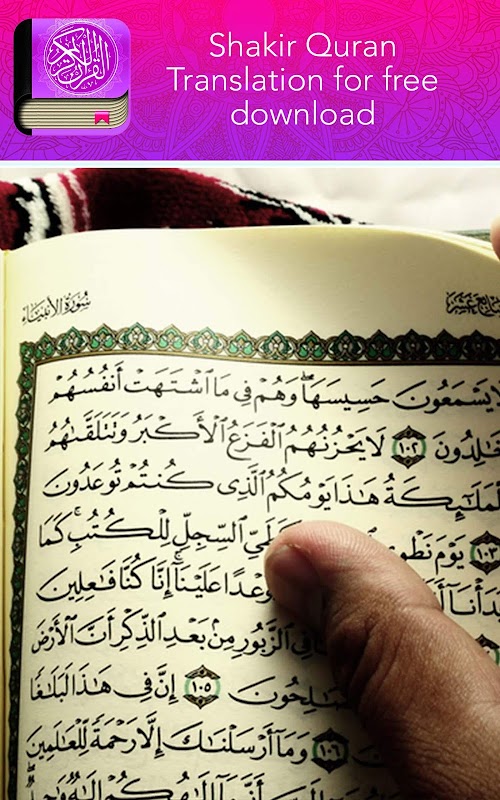 القرآن الكريم
Shakir Quran
Translation for free
download
سُورَةُ الْأَنْبِيَاءِ
لَا يَسْمَعُونَ حَسِيسَهَا وَهُمْ فِي مَا ٱشْتَهَتْ أَنفُسُهُمْ
خَٰلِدُونَ ١٠٢ لَا يَحْزُنُهُمُ ٱلْفَزَعُ ٱلْأَكْبَرُ وَتَتَلَقَّىٰهُمُ
ٱلْمَلَٰٓئِكَةُ هَٰذَا يَوْمُكُمُ ٱلَّذِى كُنتُمْ تُوعَدُونَ
١٠٣ يَوْمَ نَطْوِى ٱلسِّجِلِّ لِلْكُتُبِ كَمَا
بَدَأْنَآ وَعْدًا عَلَيْنَآ إِنَّا كُنَّا فَٰعِلِينَ
فِى ٱلزَّبُورِ مِنۢ بَعْدِ ٱلذِّكْرِ أَنَّ ٱلْأَرْضَ
ٱلصَّٰلِحُونَ ١٠٥ إِنَّ فِى هَٰذَا لَبَلَٰغًا
١٠٦ وَمَآ أَرْسَلْنَٰكَ إِلَّا رَحْمَةً لِّلْعَٰلَمِينَ
أَنَّمَآ إِلَٰهُكُمْ إِلَٰهٌ وَٰحِدٌ